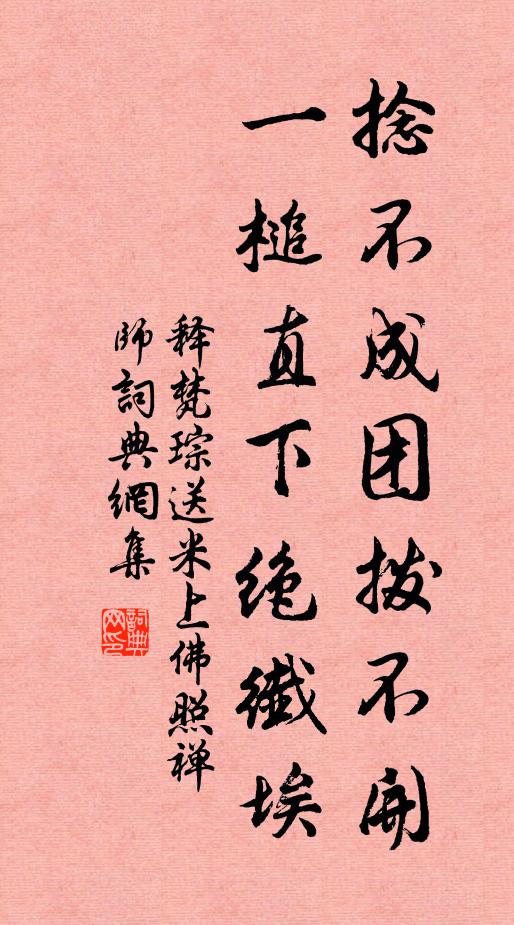 捻不成团拨不開
一槌直下绝纖埃
释梵琮送米上佛照禅
師詞典網集
詞典
网印